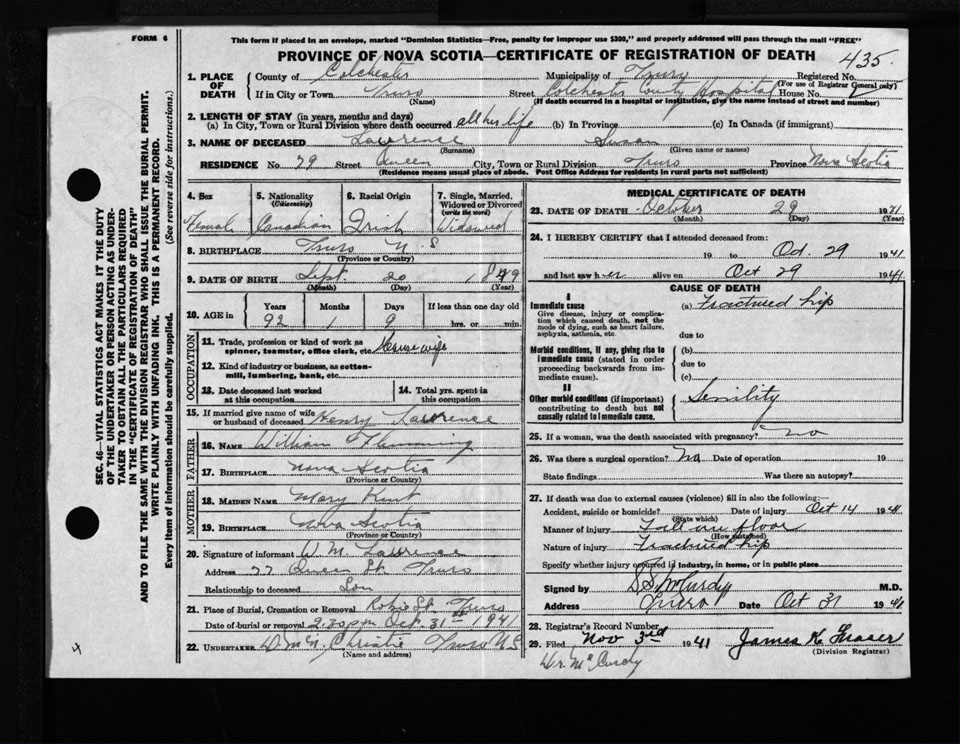 FORM 6
This form if placed in an envelope, marked "Dominion Statistics—Free, penalty for improper use $300," and properly addressed will pass through the mail "FREE"
PROVINCE OF NOVA SCOTIA—CERTIFICATE OF REGISTRATION OF DEATH 435.
1. PLACE OF DEATH County of Colchester Municipality of Truro Registered No.
(For use of Registrar General only)
If in City or Town Truro Street Colchester County Hospital House No.
(Name) (If death occurred in a hospital or institution, give the name instead of street and number)
2. LENGTH OF STAY (in years, months and days)
(a) In City, Town or Rural Division where death occurred all her life (b) In Province (c) In Canada (if immigrant)
3. NAME OF DECEASED Lawrence Susan
(Surname) (Given name or names)
RESIDENCE No. 79 Street Queen City, Town or Rural Division Truro Province Nova Scotia
(Residence means usual place of abode. Post Office Address for residents in rural parts not sufficient)
4. Sex Female
5. Nationality (Citizenship) Canadian
6. Racial Origin Irish
7. Single, Married, Widowed or Divorced (write the word) Widowed
8. BIRTHPLACE Truro N. S
(Province or Country)
9. DATE OF BIRTH Sept. 20 1849
(Month) (Day) (Year)
10. AGE in Years 92 Months 1 Days 9 If less than one day old hrs. or min.
OCCUPATION
11. Trade, profession or kind of work as spinner, teamster, office clerk, etc. Housewife
12. Kind of industry or business, as cotton-mill, lumbering, bank, etc.
13. Date deceased last worked at this occupation
14. Total yrs. spent in this occupation
15. If married give name of wife or husband of deceased Henry Lawrence
FATHER
16. NAME William Flemming
17. BIRTHPLACE Nova Scotia
(Province or Country)
MOTHER
18. MAIDEN NAME Mary Kent
19. BIRTHPLACE Nova Scotia
(Province or Country)
20. Signature of informant W. M. Lawrence
Address 77 Queen St. Truro
Relationship to deceased Son
21. Place of Burial, Cremation or Removal Robie St. Truro
Date of burial or removal 2.30 pm Oct. 31st 1941
22. UNDERTAKER Christie Truro N.S
(Name and address)
MEDICAL CERTIFICATE OF DEATH
23. DATE OF DEATH October 29 1941
(Month) (Day) (Year)
24. I HEREBY CERTIFY that I attended deceased from:
19 to Oct. 29 1941
and last saw her alive on Oct 29 1941
CAUSE OF DEATH
I
Immediate cause
Give disease, injury or complication which caused death, not the mode of dying, such as heart failure, asphyxia, asthenia, etc.
(a) Fractured hip
due to
Morbid conditions, if any, giving rise to immediate cause (stated in order proceeding backwards from immediate cause).
(b)
due to
(c)
II
Other morbid conditions (if important) contributing to death but not causally related to immediate cause.
Senility
25. If a woman, was the death associated with pregnancy? no
26. Was there a surgical operation? No Date of operation 19
State findings Was there an autopsy?
27. If death was due to external causes (violence) fill in also the following:—
Accident, suicide or homicide? Date of injury Oct 14 1941
(State which)
Manner of injury Fall on floor
(How sustained)
Nature of injury Fractured hip
Specify whether injury occurred in industry, in home, or in public place
Signed by S S McCurdy M.D.
Address Truro Date Oct 31 1941
28. Registrar's Record Number
29. Filed Nov 3rd 1941 James K. Fraser
(Division Registrar)
Dr. McCurdy
4
SEC. 46—VITAL STATISTICS ACT MAKES IT THE DUTY
OF THE UNDERTAKER OR PERSON ACTING AS UNDER-
TAKER TO OBTAIN ALL THE PARTICULARS REQUIRED
IN THE "CERTIFICATE OF REGISTRATION OF DEATH"
AND TO FILE THE SAME WITH THE DIVISION REGISTRAR WHO SHALL ISSUE THE BURIAL PERMIT.
WRITE PLAINLY WITH UNFADING INK. THIS IS A PERMANENT RECORD.
Every item of information should be carefully supplied. (See reverse side for instructions.)